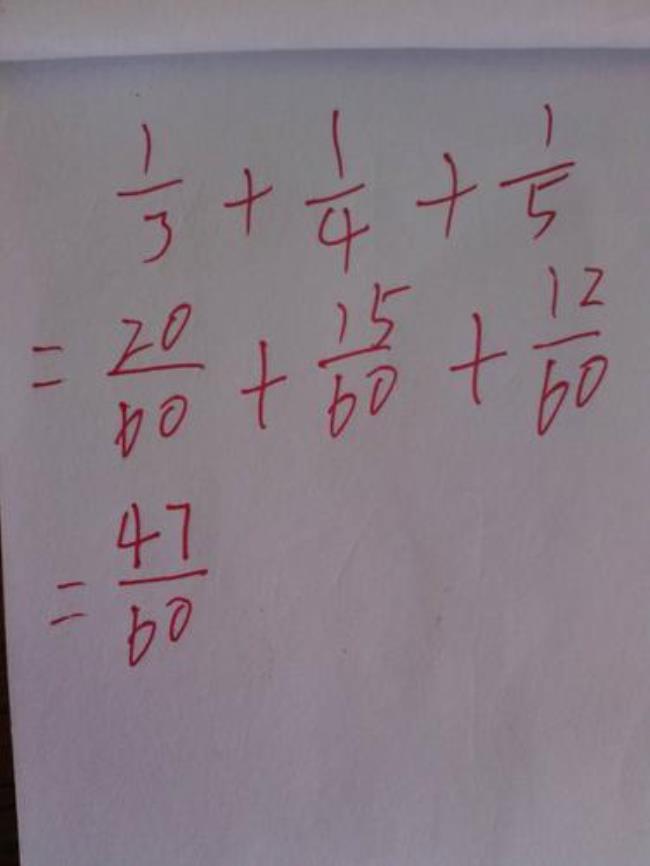 1/3 + 1/4 + 1/5
= 20/60 + 15/60 + 12/60
= 47/60